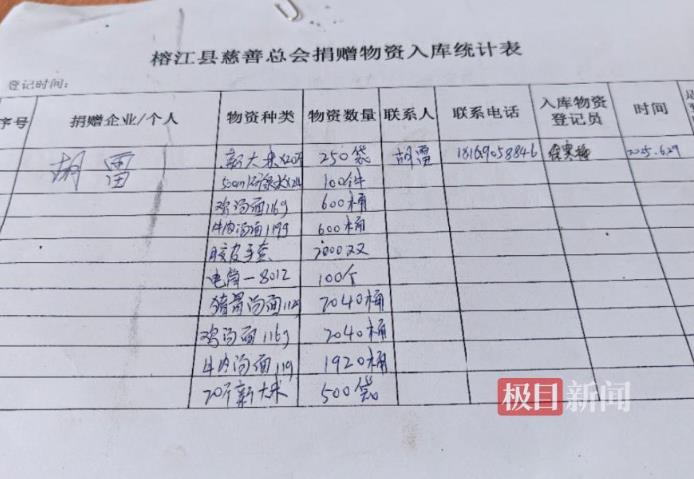 榕江县慈善总会捐赠物资入库统计表
登记时间:
序号 捐赠企业/个人 物资种类 物资数量 联系人 联系电话 入库物资登记员 时间
胡雷 新大米 250袋 胡雷 18169058846 2025.6.29
500ml矿泉水 100件
鸡汤面116g 600桶
牛肉汤面119g 600桶
胶皮手套 2000双
电筒-8012 100个
猪骨汤面 2040桶
鸡汤面116g 2040桶
牛肉汤面119 1920桶
20斤新大米 500袋
极目新闻